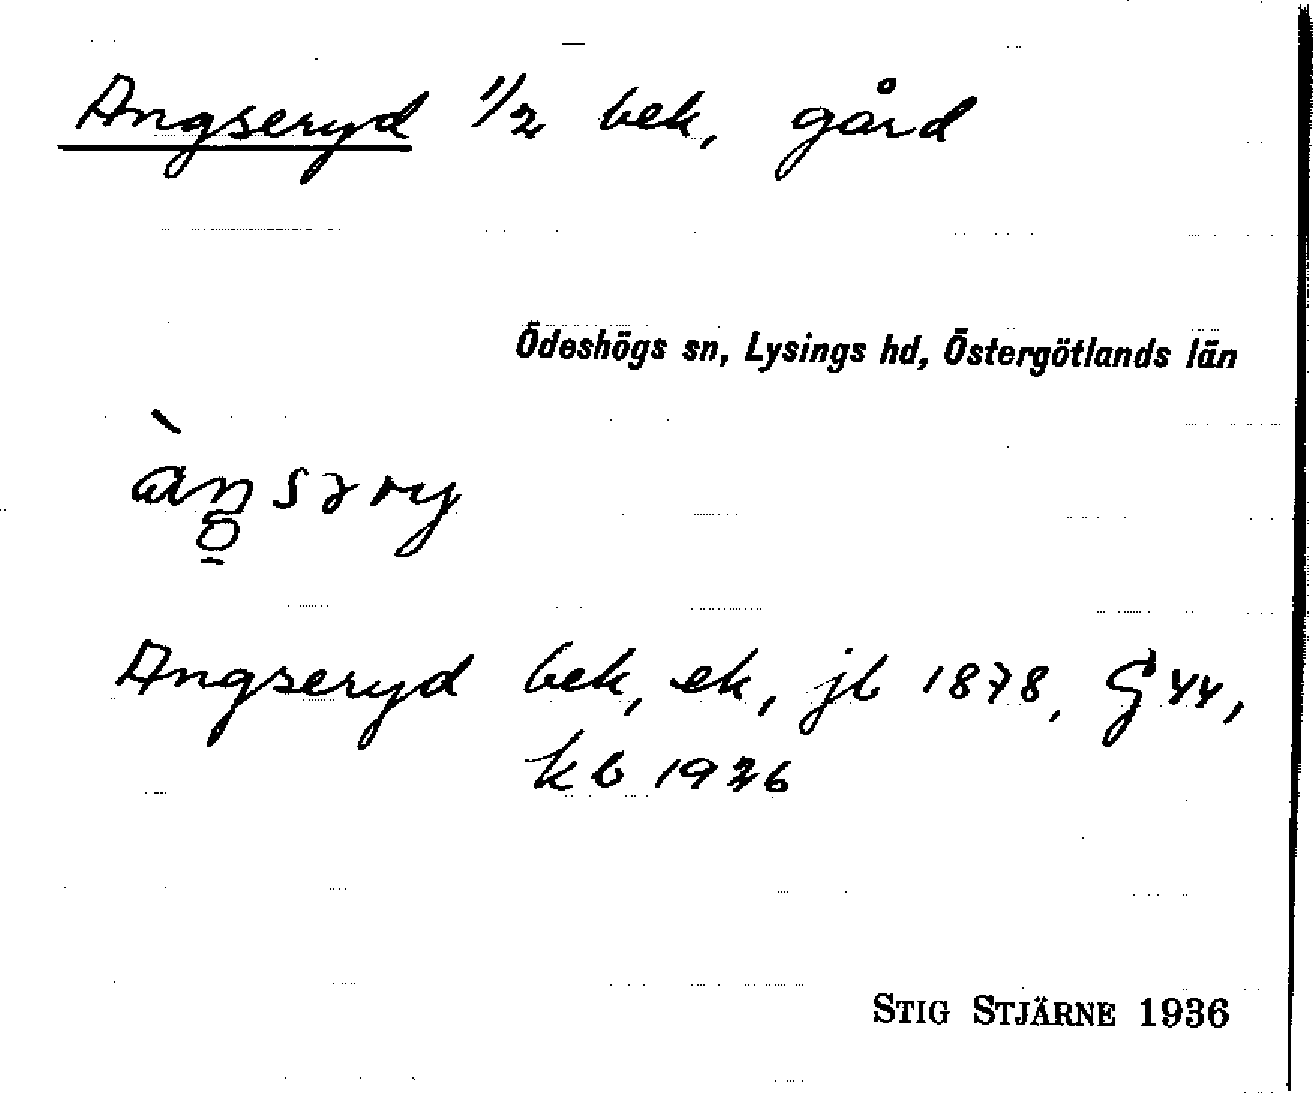 Angseryd 1/2 bek, gård
Ödeshögs sn, Lysings hd, Östergötlands län
Angseryd bek, ek, jb 1878, G 44,
kb 1936
STIG STJÄRNE 1936